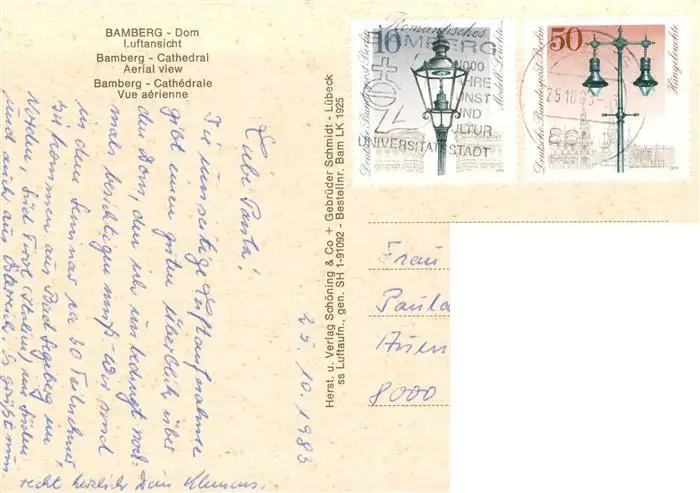 BAMBERG - Dom
Luftansicht
Bamberg - Cathedral
Aerial view
Bamberg - Cathédrale
Vue aérienne
Liebe Paula!
Die umseitige Luftaufnahme
gibt einen guten Überblick über
den Dom, den ich unbedingt noch
mal besichtigen muß. Wir sind
in dem Seminar ca 30 Teilnehmer,
sie kommen aus Bad Segeberg im
Norden, Süd Tirol (Italien) im Süden
und auch aus Österreich. Es grüßt nun
recht herzlich Dein Klemens.
25. 10. 1983
Herst. u. Verlag Schöning & Co + Gebrüder Schmidt - Lübeck
ss Luftaufn., gen. SH 1-91092 - Bestellnr. Bam LK 1925
10
Deutsche Bundespost Berlin
Modell-Leuchte
1979
Romantisches
BAMBERG
1000
JAHRE
KUNST
UND
KULTUR
UNIVERSITÄTSSTADT
50
Deutsche Bundespost Berlin
Hängeleuchte
1979
25.10.83
Frau
Paula
Auen
8000